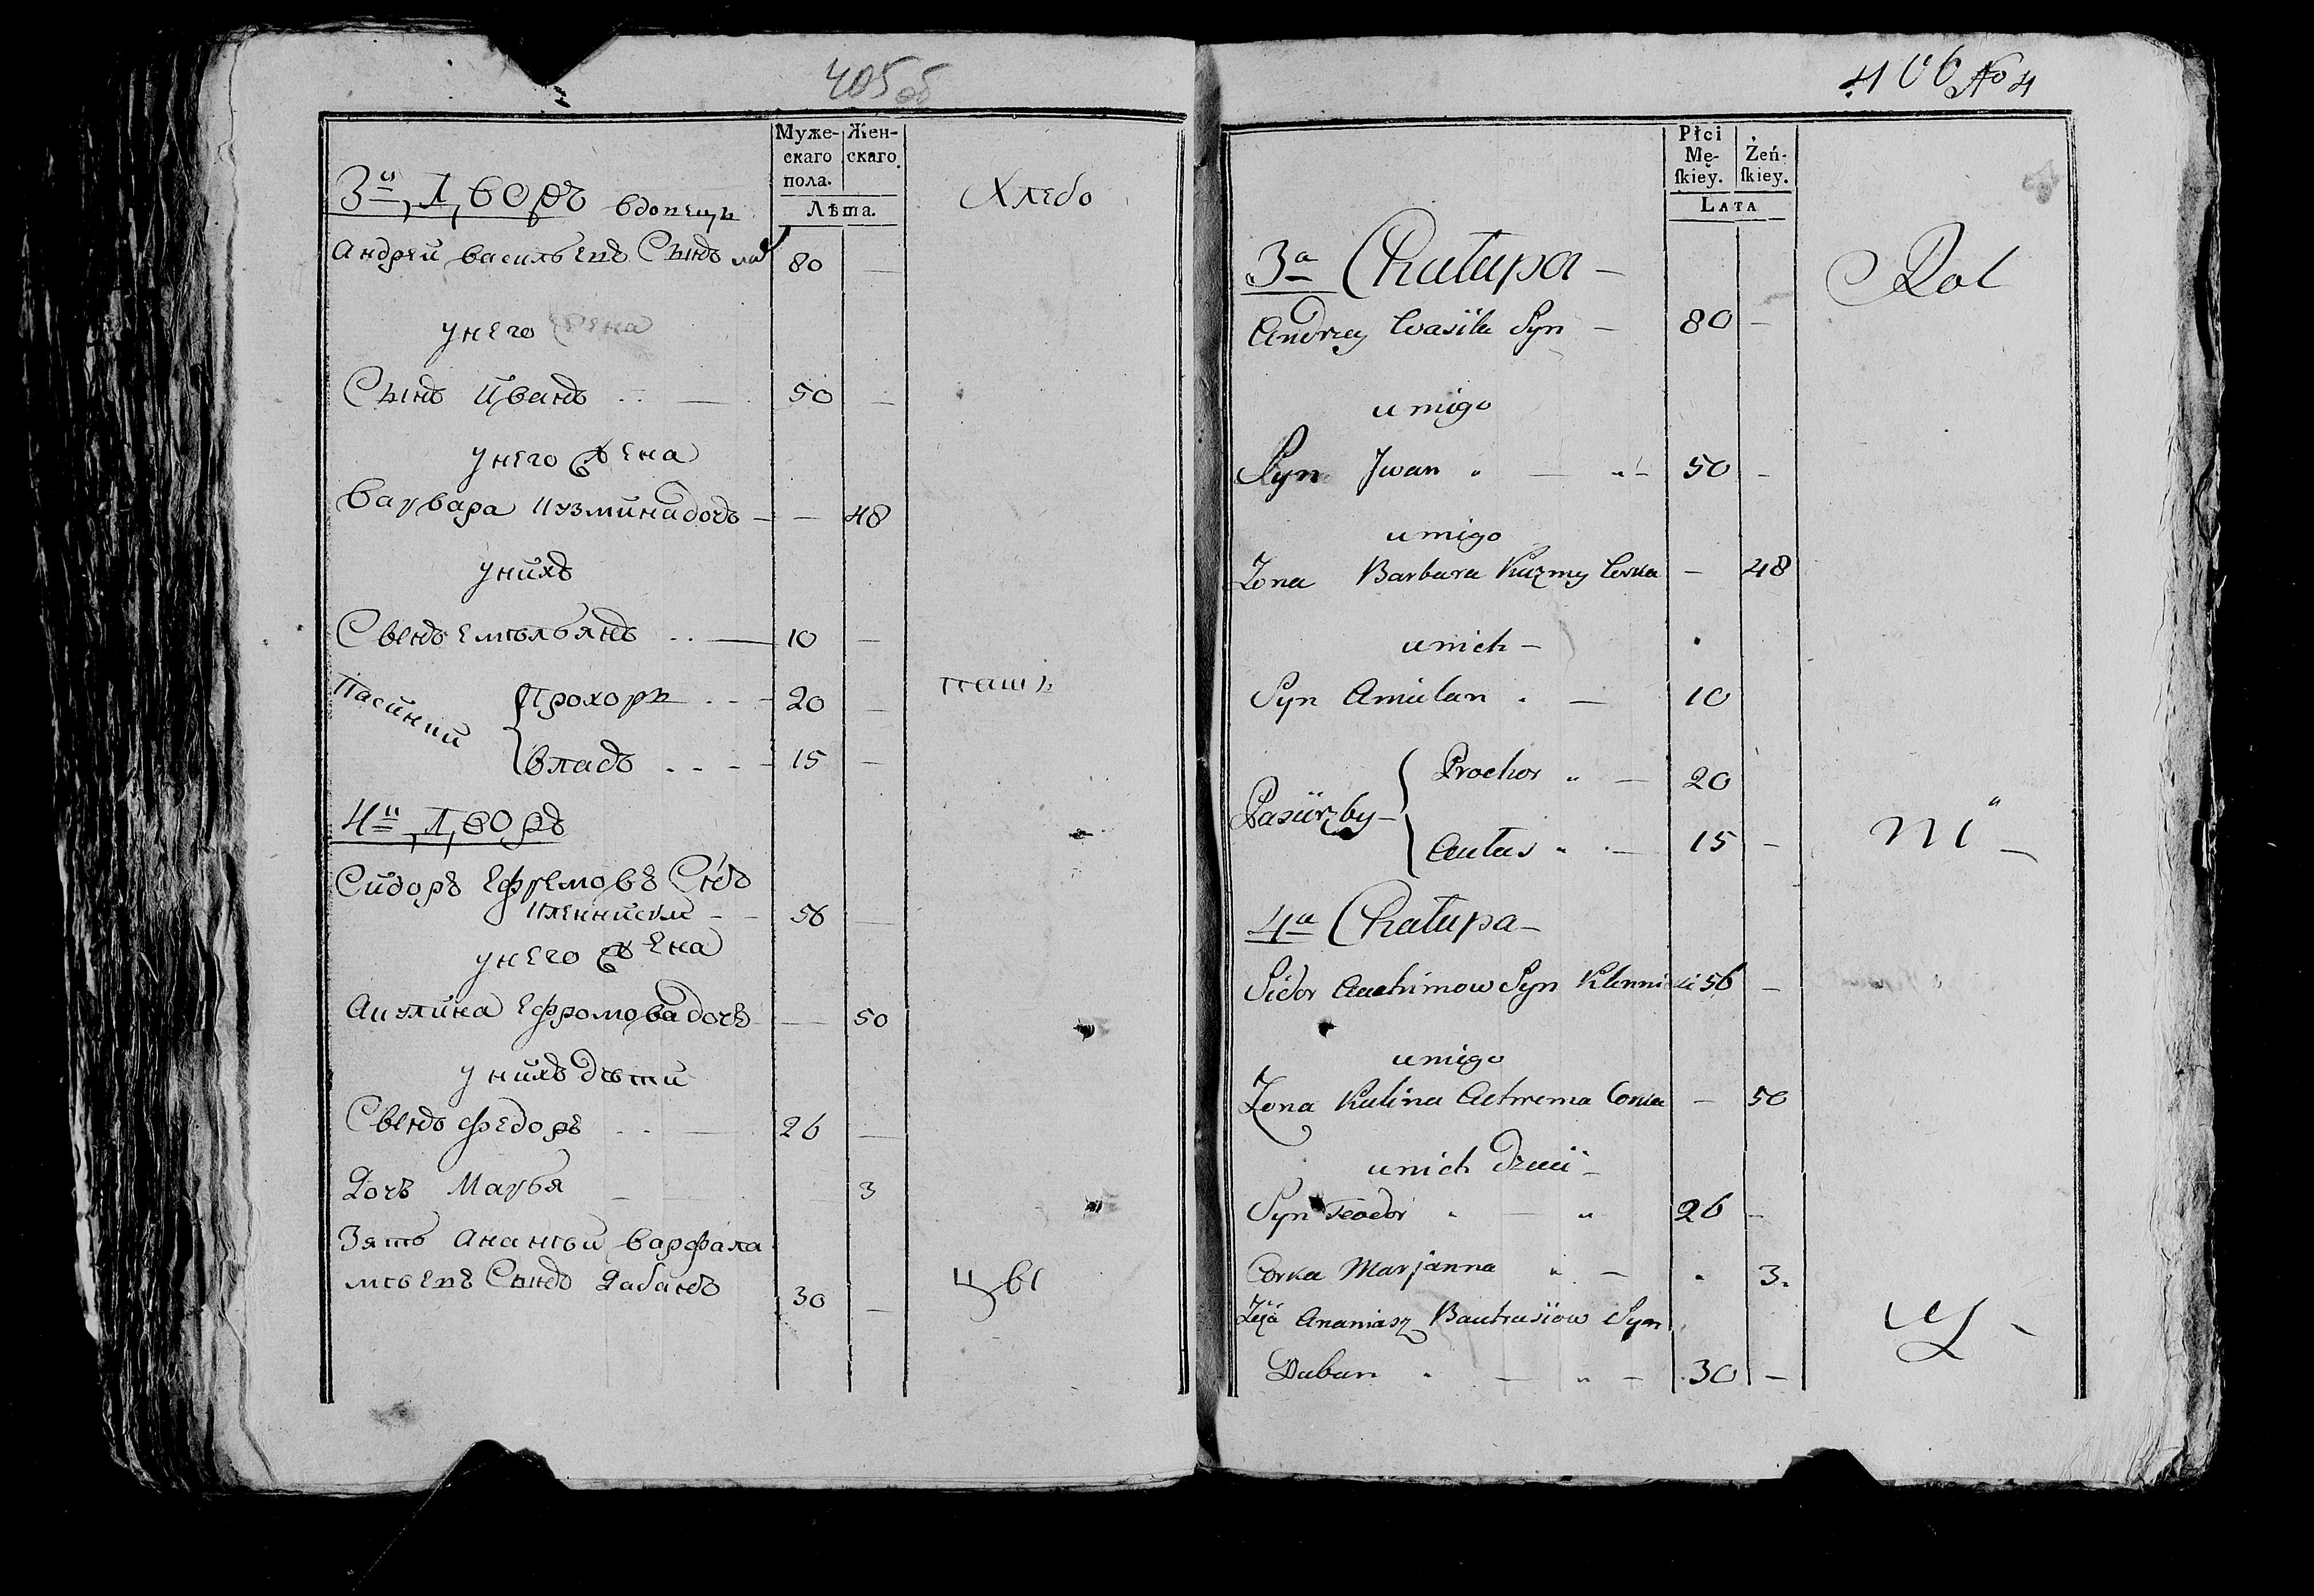 405 об
Муже-
скаго
пола.
Жен-
скаго.
Лѣта.
3й Дворъ вдовецъ
Хлебо
Андрей васильевъ Сынъ 80 —
у него жена
Сынъ Иванъ . . — 50 —
у него жена
Варвара кузмина дочь — — 48
у нихъ
Сынъ емельянъ . . — 10 —
Пасинки
Прохоръ . . - 20 —
паш
владъ . . - - 15 —
4й Дворъ
Сидоръ Ефремовъ Снъ
кленниски - - 56 —
у него жена
Акулина Ефромова дочь — 50
у нихъ дѣти
Сынъ федоръ . . — 26 —
Дочь Марья — 3
Зять Ананьи варфала
мѣевъ Сынъ Дабанъ 30 —
цы
406 No 4
Płci
Mę-
skiey.
Żeń-
skiey.
LATA
3a Chałupa —
Rol
Andrzey Wasila Syn — 80 —
u niego
Syn Jwan " — "- 50 —
u niego
Żona Barbara Kuzmy Corka — 48
u nich —
Syn Amielan . — 10
Pasierzby —
Prochor " — 20
Aułas " . — 15 —
ni —
4a Chałupa —
Sidor Auchimow Syn Klenniski 56 —
u niego
Żona Kulina Achrema Corka — 50
u nich Dzieci —
Syn Teodor " — " 26 —
Corka Marjanna " — " 3.
Zięć Ananiasz Bautrusiow Syn
cy —
Daban " — " — 30 —